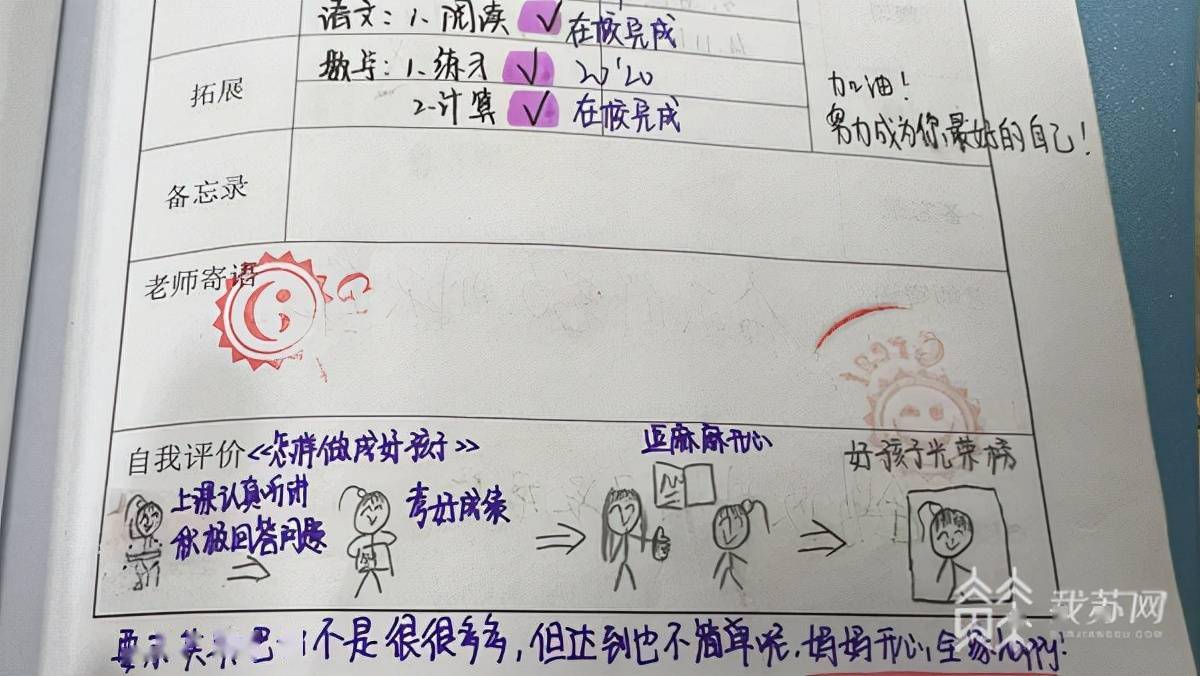 语文：1、阅读 ✓ 在校完成
拓展
数学：1、练习 ✓ 20'20
2、计算 ✓ 在校完成
加油！
努力成为你最好的自己！
备忘录
老师寄语
Great
自我评价
《怎样做成好孩子》
上课认真听讲
积极回答问题
考好成绩
逗麻麻开心
好孩子光荣榜
不是很很多多，但达到也不简单呢，妈妈开心，全家happy！
我苏网